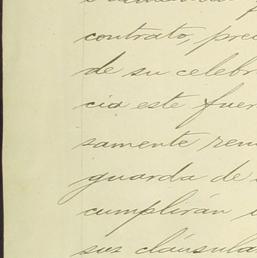 contrato, prec
de su celebr
cia este fuer
samente renu
guarda de
cumplirán
sus cláusula